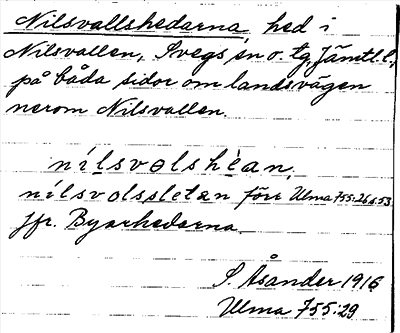 Nilsvallshedarna, hed i
Nilsvallen, Svegs sn o. tg, Jämtl. l.,
på båda sidor om landsvägen
nerom Nilsvallen.
nílsvɵlshèan,
nílsvolssletæn förr Ulma 755:26 s. 53
Jfr. Byarhedarna.
S. Åsander 1916
Ulma 755:29